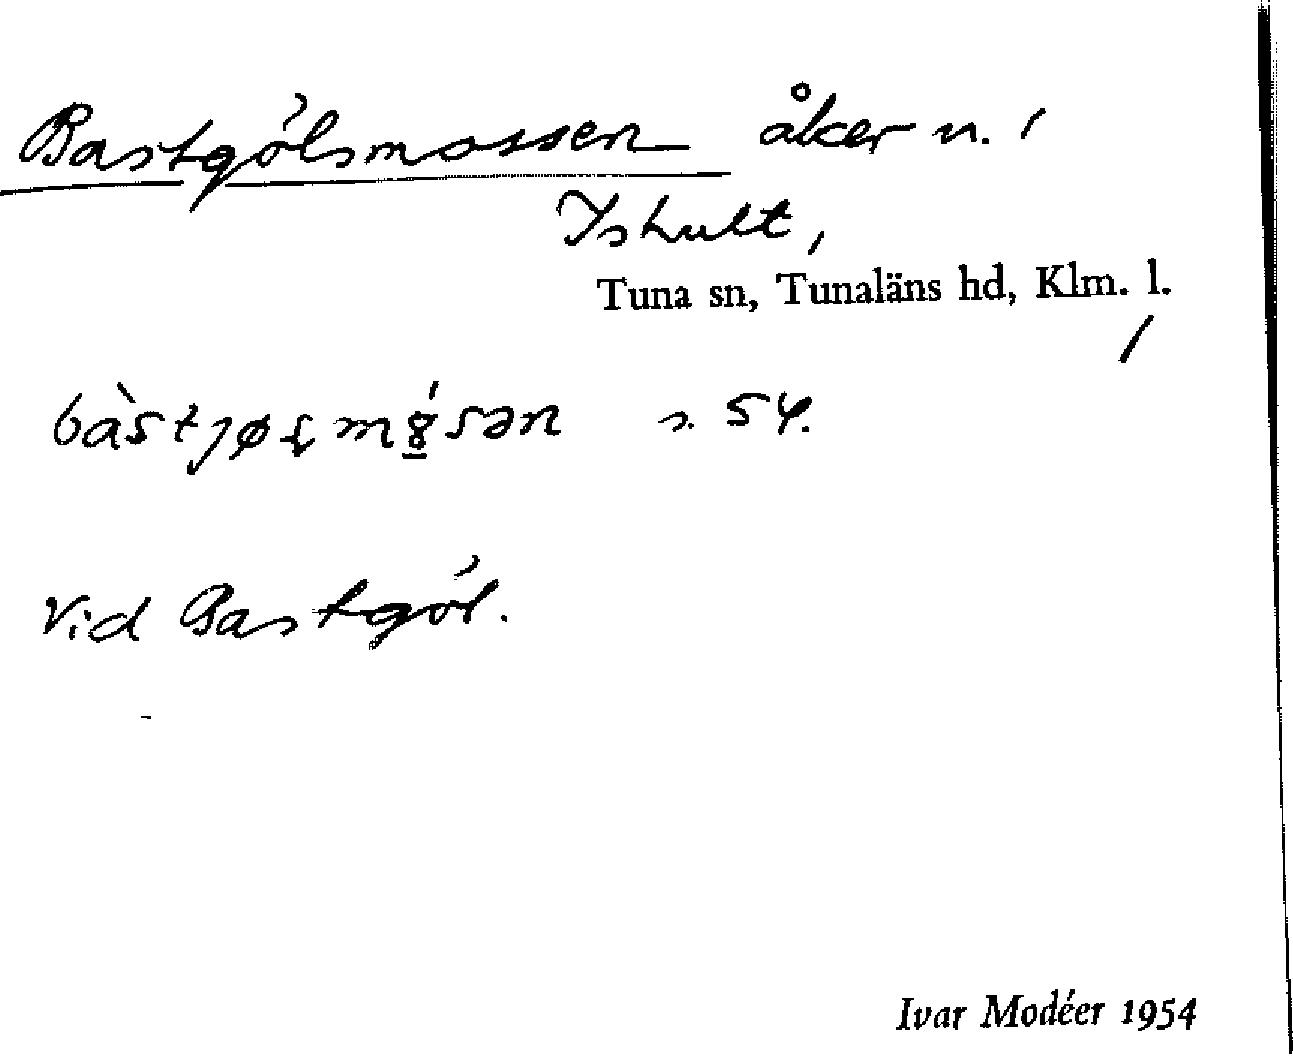 Bastgölsmossen åker u. /
Ishult,
Tuna sn, Tunaläns hd, Klm. l.
/
s. 54.
Vid Bastgöl.
Ivar Modéer 1954